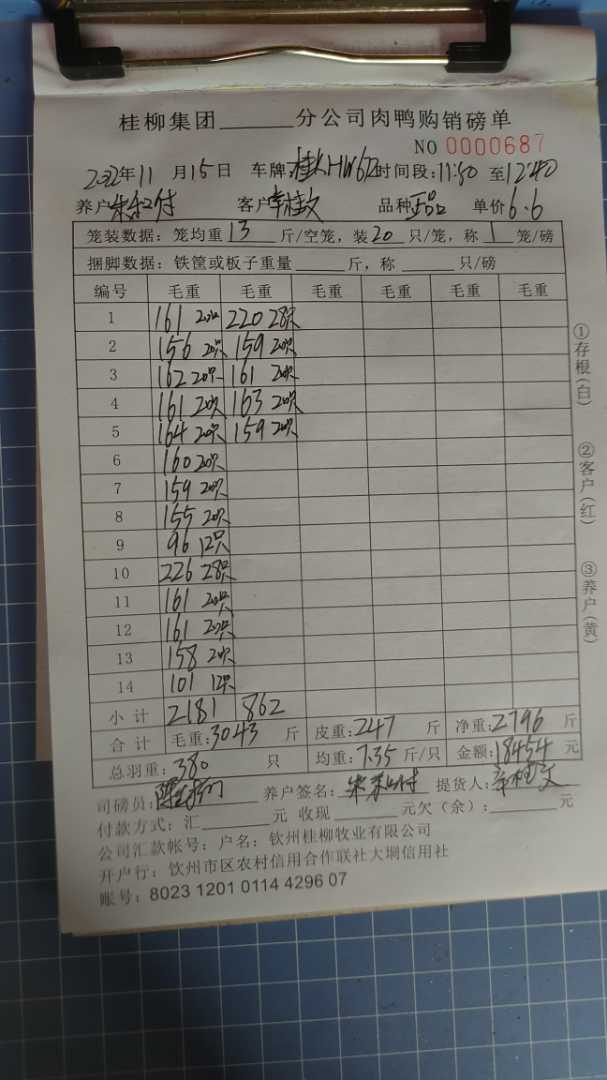 桂柳集团______分公司肉鸭购销磅单
NO 0000687
2022年11月15日 车牌: 时间段:11:50 至12:40
养户 客户 品种正品 单价6.6
笼装数据: 笼均重 13 斤/空笼, 装 20 只/笼, 称 1 笼/磅
捆脚数据: 铁筐或板子重量______斤, 称______只/磅
编号 毛重 毛重 毛重 毛重 毛重 毛重
1 161 20只 220 28只
2 156 20只 159 20只
3 162 20只 161 20只
4 161 20只 163 20只
5 164 20只 159 20只
6 160 20只
7 159 20只
8 155 20只
9 96 12只
10 226 28只
11 161 20只
12 161 20只
13 158 20只
14 101 12只
小计 2181 862
合计 毛重:3043 斤 皮重:247 斤 净重:2796 斤
总羽重: 380 只 均重:7.35 斤/只 金额:18454 元
司磅员: 养户签名: 提货人:
付款方式: 汇______元 收现______元欠(余):______元
公司汇款帐号: 户名: 钦州桂柳牧业有限公司
开户行: 钦州市区农村信用合作联社大垌信用社
账号: 8023 1201 0114 4296 07
①存根(白)
②客户(红)
③养户(黄)